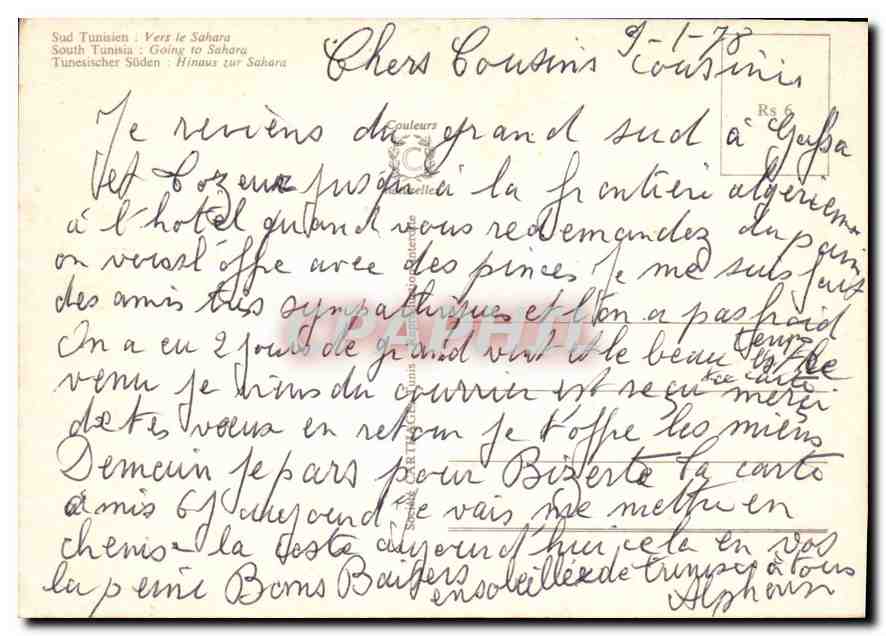 Sud Tunisien : Vers le Sahara
South Tunisia : Going to Sahara
Tunesischer Süden : Hinaus zur Sahara
9-1-78
Chers Cousins Cousine
Rs 6
Couleurs
Je reviens du grand sud à Gafsa
et Tozeur jusqu'à la frontière algérienne
à l'hotel quand vous redemandez du pain
on vous l'offre avec des pinces Je me suis fait
des amis très sympathiques et l'on a pas froid
On a eu 2 jours de grand vent et le beau temps est
venu je viens du courrier est reçu ta carte merci
de tes voeux en retour je t'offre les miens
Demain je pars pour Bizerte la carte
a mis 6 j aujourd je vais me mettre en
chemise la veste aujourd'hui cela en vos
la peine Bons Baisers ensoleillée de Tunisie à tous
Alphonse
CPAPHIL